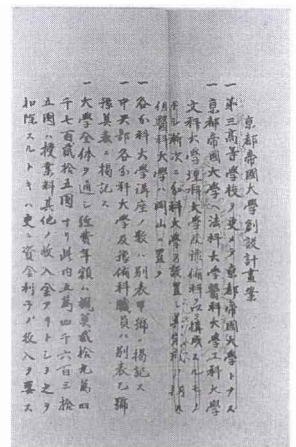 京都帝國大學創設計畫案
一第三高等學校ヲ更メテ京都帝國大學トナス
一京都帝國大學ハ法科大學醫科大學工科大學
文科大學理科大學及豫備科ヨリ構成スルモノ
トシ漸次ニ分科大學ヲ設置シ
但醫科大學ハ岡山ニ置ク
一各分科大學講座ノ數ハ別表甲號ニ掲記ス
一中央部各分科大學及豫備科職員ハ別表乙號
豫算表ニ掲記ス
一大學全体ヲ通シ經費年額ハ拾九萬四
千七百貳拾五圓ナリ此内五萬四千六百三拾
五圓ハ授業料其他ノ收入金アルトシ之ヲ
扣除スルトキハ更ニ資金利子ノ收入ヲ要ス